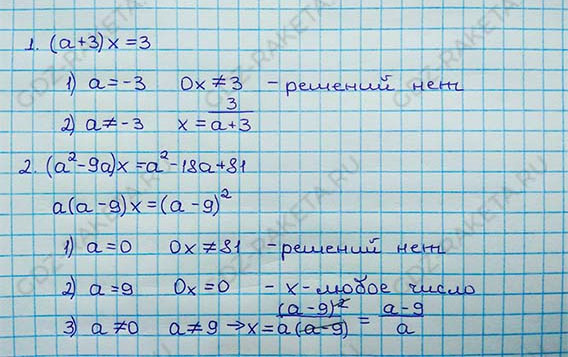 1. (a+3)x=3
1) a=-3 0x≠3 - решений нет
2) a≠-3 x=3/(a+3)
2. (a²-9a)x=a²-18a+81
a(a-9)x=(a-9)²
1) a=0 0x≠81 - решений нет
2) a=9 0x=0 - x-любое число
3) a≠0 a≠9 → x=(a-9)²/(a(a-9)) = (a-9)/a
GDZ-RAKETA.RU